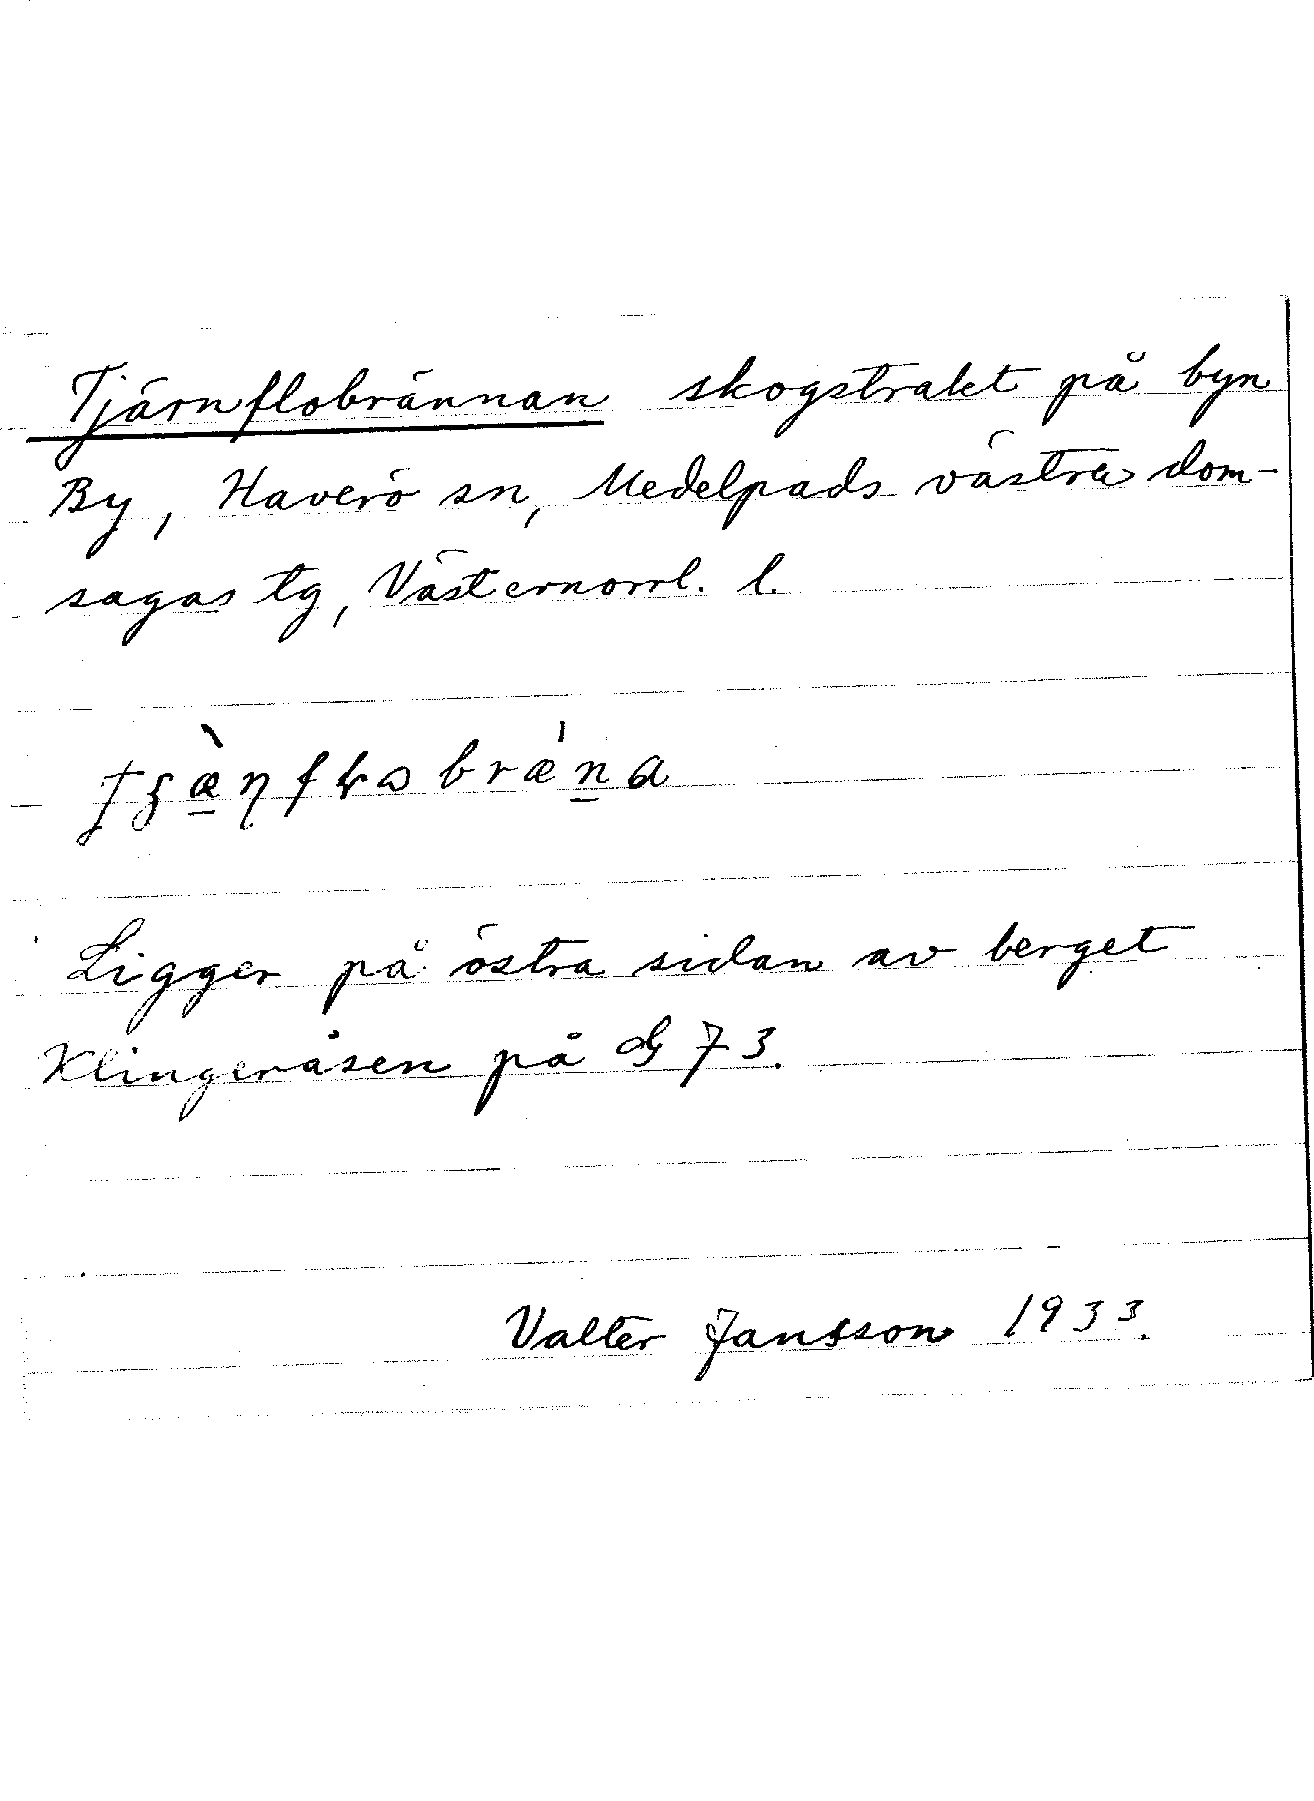 Tjärnflobrännan skogstrakt på byn
By, Haverö sn, Medelpads västra dom-
sagas tg, Västernorrl. l.
Ligger på östra sidan av berget
Klingeråsen på G 73.
Valter Jansson 1933.